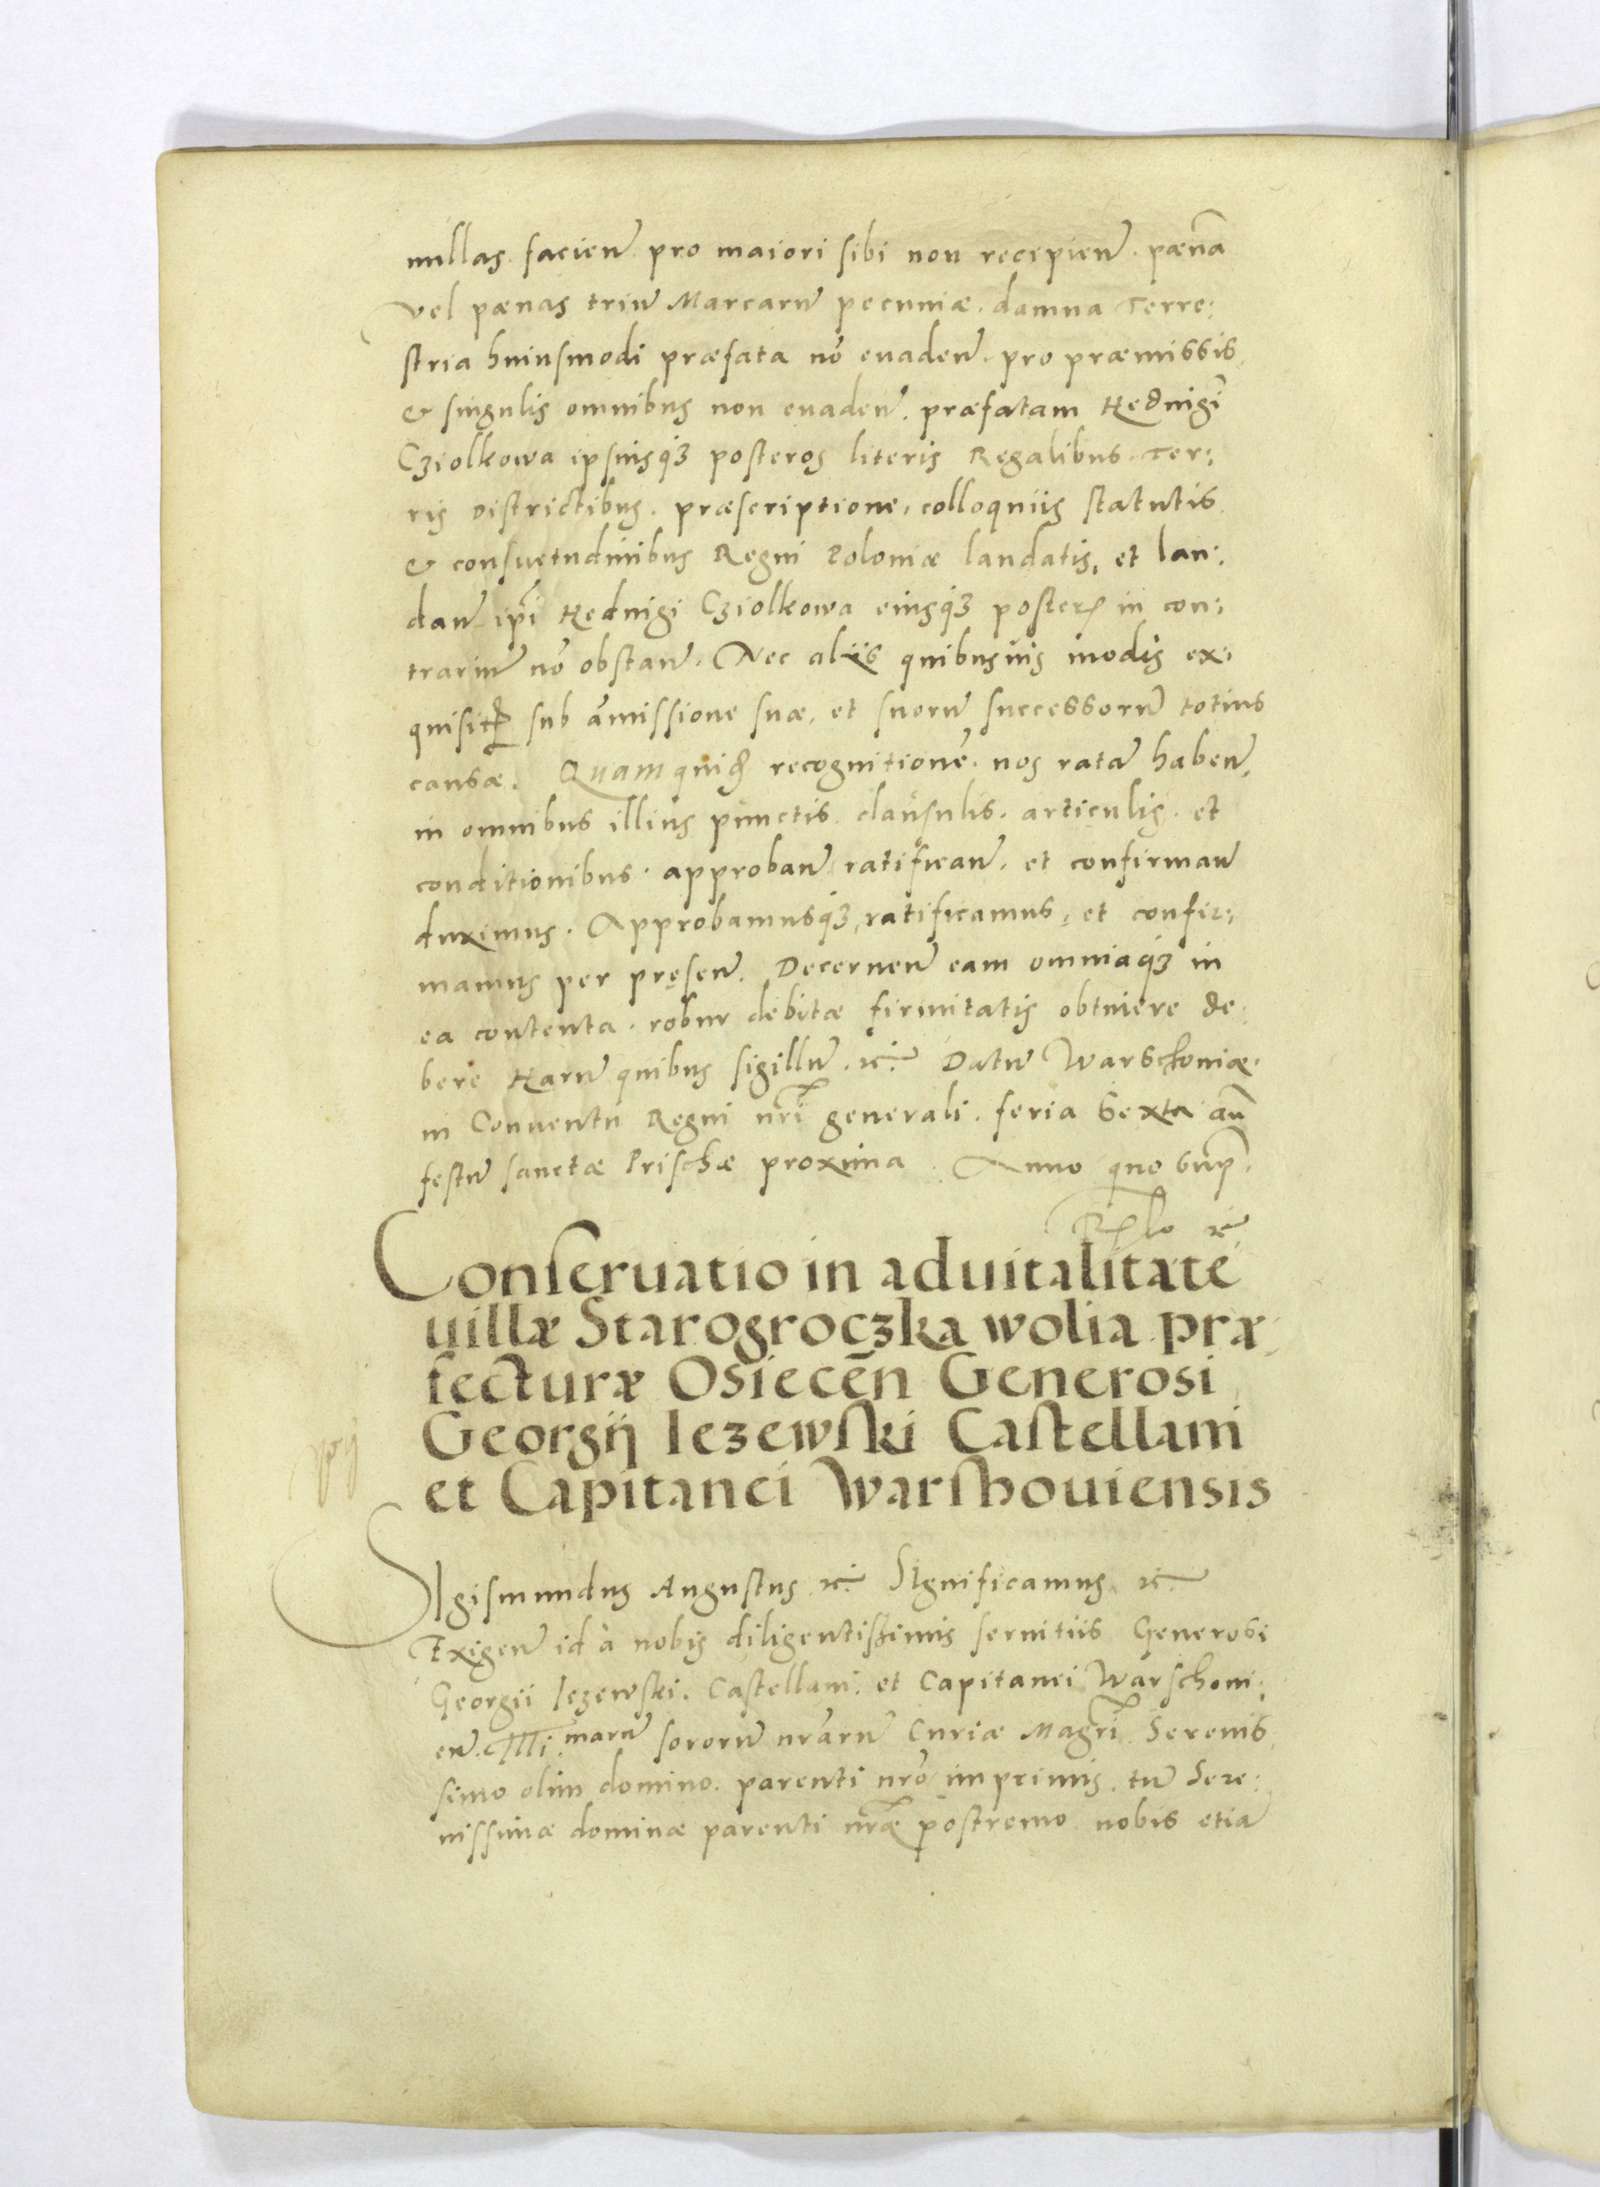 nullas facien̄ pro maiori sibi non recipien̄. pœnā
vel pœnas triū Marcarū pecuniæ. damna Terre:
stria huiusmodi præfata nō euaden̄. pro præmissis
& singulis omnibus non euaden̄. præfatam Heduigī
Cziolkowa ipsiusq3 posteros literis Regalibus. Ter:
ris districtibus. præscriptione, colloquiis statutis
& consuetudinibus Regni Poloniæ laudatis, et lau:
dan̄ ip̄i Heduigi Cziolkowa eiusq3 poster in con:
trariū nō obstan̄. Nec aliis quibusuis modis ex:
quisit sub āmissione suæ, et suorū successorū totius
causæ. Quam quid recognitionē nos ratā haben̄,
in omnibus illius punctis clausulis. articulis. et
conditionibus. approban̄ ratifican̄. et confirman̄
duximus. Approbamusq3, ratificamus, et confir:
mamus per pręsen̄. Decernen̄ eam omniaq3 in
ea contenta. robur debitæ firmitatis obtinere de:
bere Harū quibus sigillū. ⁊c̄. Datū Warschouiæ.
in Conuentu Regni nr̄i generali. feria Sexta an̄
festū sanctæ Prischæ proxima. Anno quo sup̄.
Rlo ⁊c̄
Conseruatio in aduitalitatē
uillæ Starogroczka wolia præ
fecturæ Osiecēn Generosi
Georgij Iezewski Castellani
et Capitanei Warshouiensis
Sigismundus Augustus ⁊c̄. Significamus ⁊c̄.
Exigen̄ id à nobis diligentißimis seruitiis Generosi
Georgii Iezewski. Castellani. et Capitanei Warschoui:
en̄. Illi.marū sororū nr̄arū Curiæ Magr̄i Serenis
simo olim domino. parenti nr̄o imprimis. tū Sere:
nissimæ dominæ parenti nr̄æ postremo nobis etiā